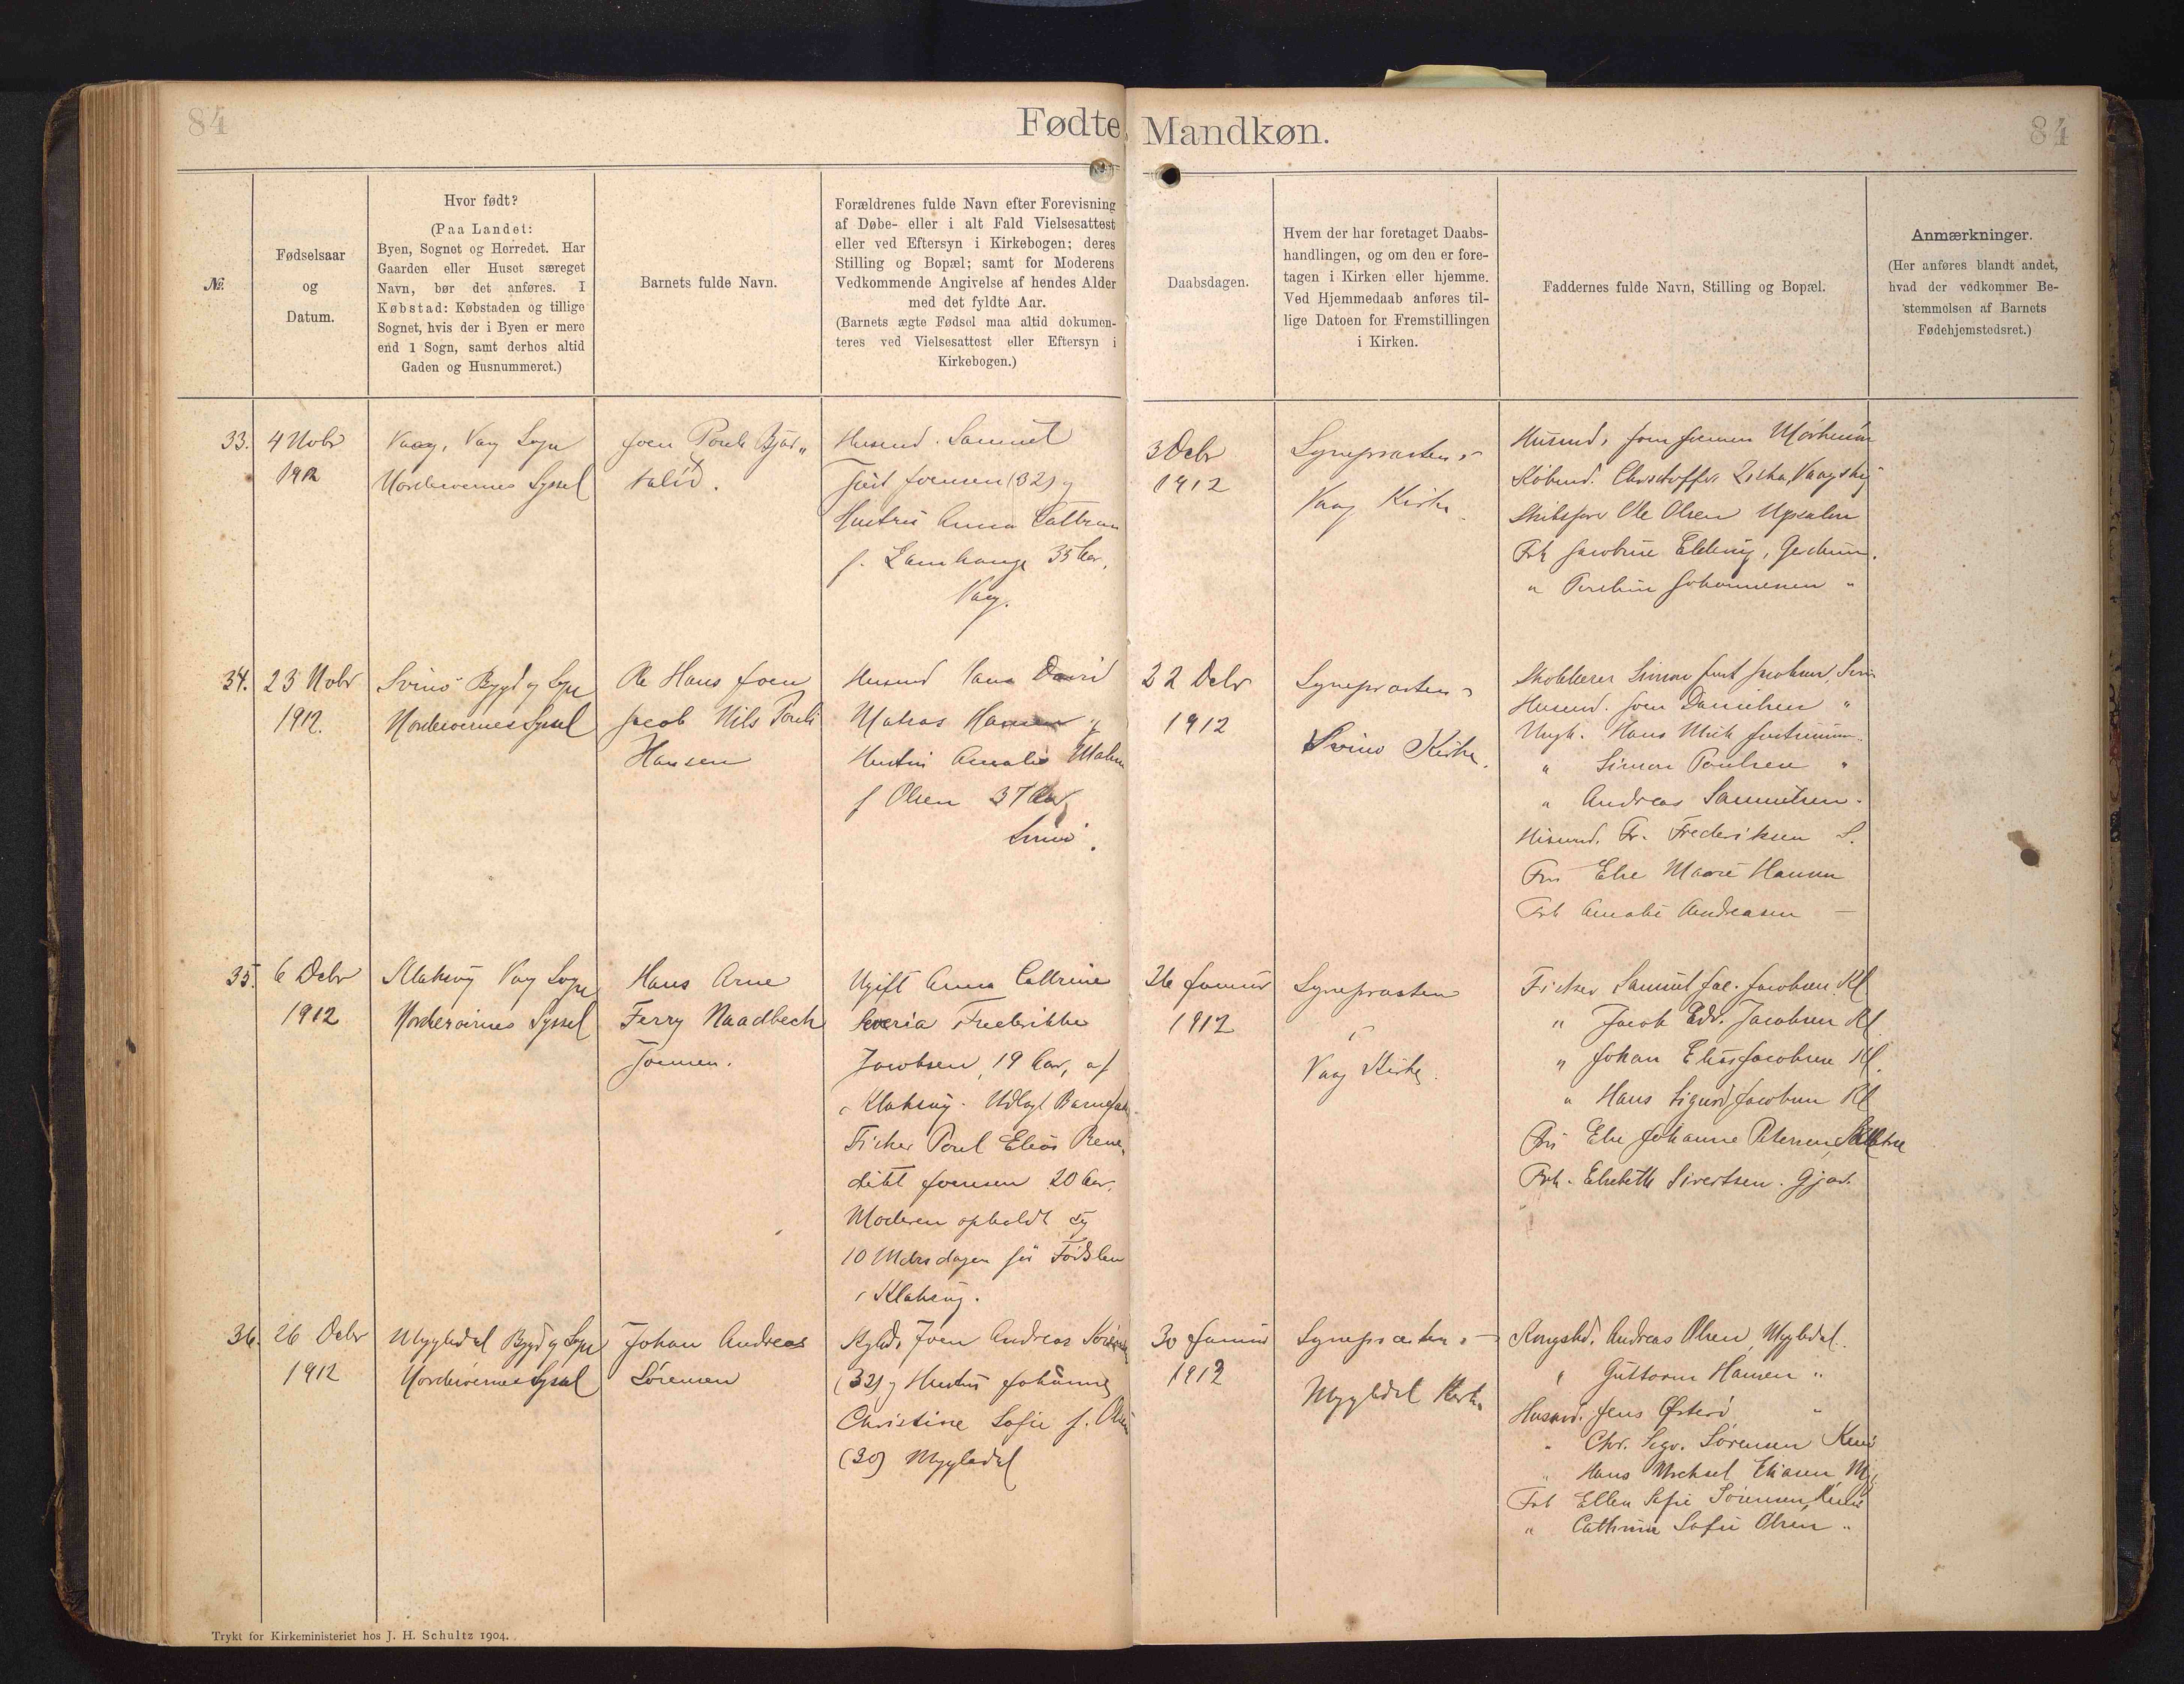 84
Fødte, Mandkøn.
84
№
Fødselsaar
og
Datum.
Hvor født?
(Paa Landet:
Byen, Sognet og Herredet. Har
Gaarden eller Huset særeget
Navn, bør det anføres. I
Købstad: Købstaden og tillige
Sognet, hvis der i Byen er mere
end 1 Sogn, samt derhos altid
Gaden og Husnummeret.)
Barnets fulde Navn.
Forældrenes fulde Navn efter Forevisning
af Døbe- eller i alt Fald Vielsesattest
eller ved Eftersyn i Kirkebogen; deres
Stilling og Bopæl; samt for Moderens
Vedkommende Angivelse af hendes Alder
med det fyldte Aar.
(Barnets ægte Fødsel maa altid dokumen-
teres ved Vielsesattest eller Eftersyn i
Kirkebogen.)
Daabsdagen.
Hvem der har foretaget Daabs-
handlingen, og om den er fore-
tagen i Kirken eller hjemme.
Ved Hjemmedaab anføres til-
lige Datoen for Fremstillingen
i Kirken.
Faddernes fulde Navn, Stilling og Bopæl.
Anmærkninger.
(Her anføres blandt andet,
hvad der vedkommer Be-
stemmelsen af Barnets
Fødehjemstedsret.)
33.
4 Novbr
1912
Vaag, Vaag Sogn
Norderøernes Syssel
Joen Pouli Bjar„
talid.
Husmd. Samuel
Joensen (32) og
Hustru Anna Cathrine
f. Lamhauge 35 Aar,
Vaag.
3 Decbr
1912
Synepræsten i
Vaag Kirke.
Husmd. Joen Joensen
Købmd. Christoffer
Ole Olsen Upsalen
Frk Jacobine
„ Johannesen „
34.
23 Novbr
1912.
Svinø Bygd og Sogn
Norderøernes Syssel
Ole Hans Joen
Jacob Nils Pouli
Hansen
Husmd David
Hansen og
Hustru Amalie Malene
f Olsen 37 Aar,
Svinø.
22 Decbr
1912
Synepræsten i
Svinø Kirke.
Skolelærer Simon Jacobsen,
Husmd. Joen Danielsen „
Ungk. Hans
„ Simon Poulsen „
„ Andreas Samuelsen
Husmd. Fr. Frederiksen S.
Fru Else Marie Hansen
Frk Amalie Andreasen —
35.
6 Decbr
1912
Klaksvig Vaag Sogn
Norderøernes Syssel
Hans Arne
Ferry Naadbech
Joensen.
Ugift Anna Cathrine
Severia Frederikke
Jacobsen, 19 Aar, af
Klaksvig. Udlagt Barnefader
Fisker Poul Elias Bene-
dikt Joensen 20 Aar.
Moderen opholdt sig
10 Mdrsdagen før Fødslen
i Klaksvig.
26 Januar
1912
Synepræsten
i
Vaag Kirke.
Fisker Samuel Jac. Jacobsen Kl
„ Jacob Edv. Jacobsen Kl
„ Johan Elias Jacobsen Kl.
„ Hans Sigurd Jacobsen Kl
Fru Else Johanne Petersen,
Frk. Elsebeth Sivertsen. Gjov.
36.
26 Decbr
1912
Mygledal Bygd og Sogn
Norderøernes Syssel
Johan Andreas
Sørensen
Joen Andreas Sørensen
(32) og Hustru Johanne
Christine Sofie f. Olsen
(30) Mygledal
30 Januar
1912
Synepræsten i
Mygledal Kirke
Kongsbd. Andreas Olsen, Mygledal.
„ Guttorm Hansen „
Husmd. Jens Østerø „
„ Chr. Sigv. Sørensen
„ Hans Michael Eliasen Myg
Frk Ellen Sofie Sørensen
„ Cathrine Sofie Olsen „
Trykt for Kirkeministeriet hos J. H. Schultz 1904.